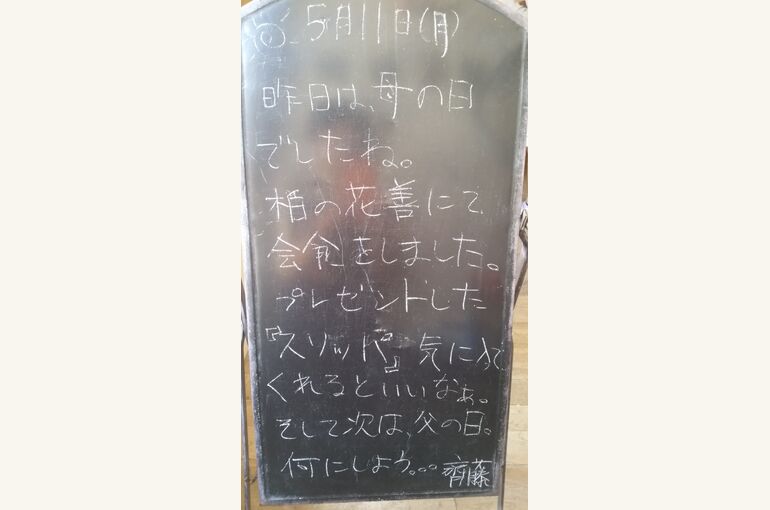 5月11日(月)
昨日は、母の日
でしたね。
柏の花善にて
会食をしました。
プレゼントした
『スリッパ』気に入って
くれるといいなぁ。
そして次は、父の日。
何にしよう。。。齊藤